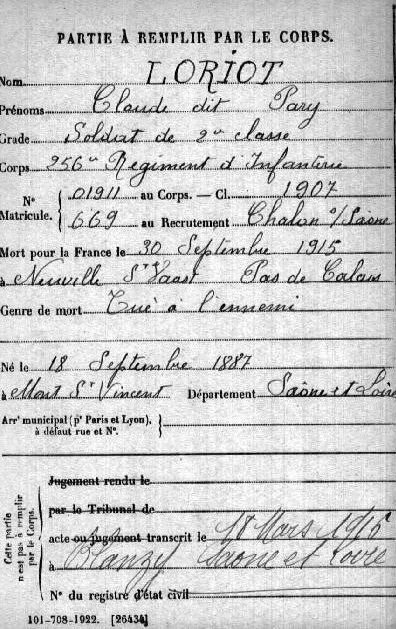 PARTIE À REMPLIR PAR LE CORPS.
Nom LORIOT
Prénoms Claude dit Pary
Grade Soldat de 2e classe
Corps 256e Regiment d'Infanterie
N° Matricule. { 01911 au Corps. — Cl. 1907
669 au Recrutement Chalon s/Saône
Mort pour la France le 30 Septembre 1915
à Neuville St Vaast Pas de Calais
Genre de mort Tué à l'ennemi
Né le 18 Septembre 1887
à Mont St Vincent Département Saône et Loire
Arr' municipal (p' Paris et Lyon),
à défaut rue et N°.
Cette partie n'est pas à remplir par le Corps.
Jugement rendu le
par le Tribunal de
acte ou jugement transcrit le 18 Mars 1916
à Blanzy Saone et Loire
N° du registre d'état civil
101-708-1922. [26434]